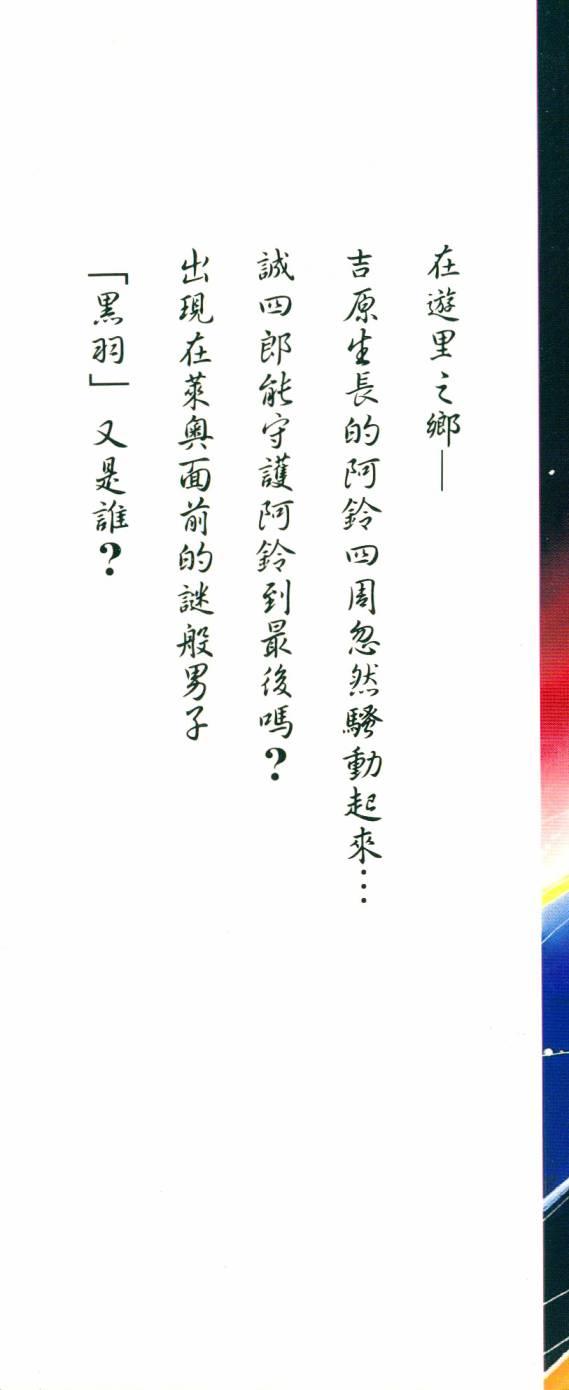 在遊里之鄉—
吉原生長的阿鈴四周忽然騷動起來…
誠四郎能守護阿鈴到最後嗎？
出現在萊奧面前的謎般男子
「黑羽」又是誰？